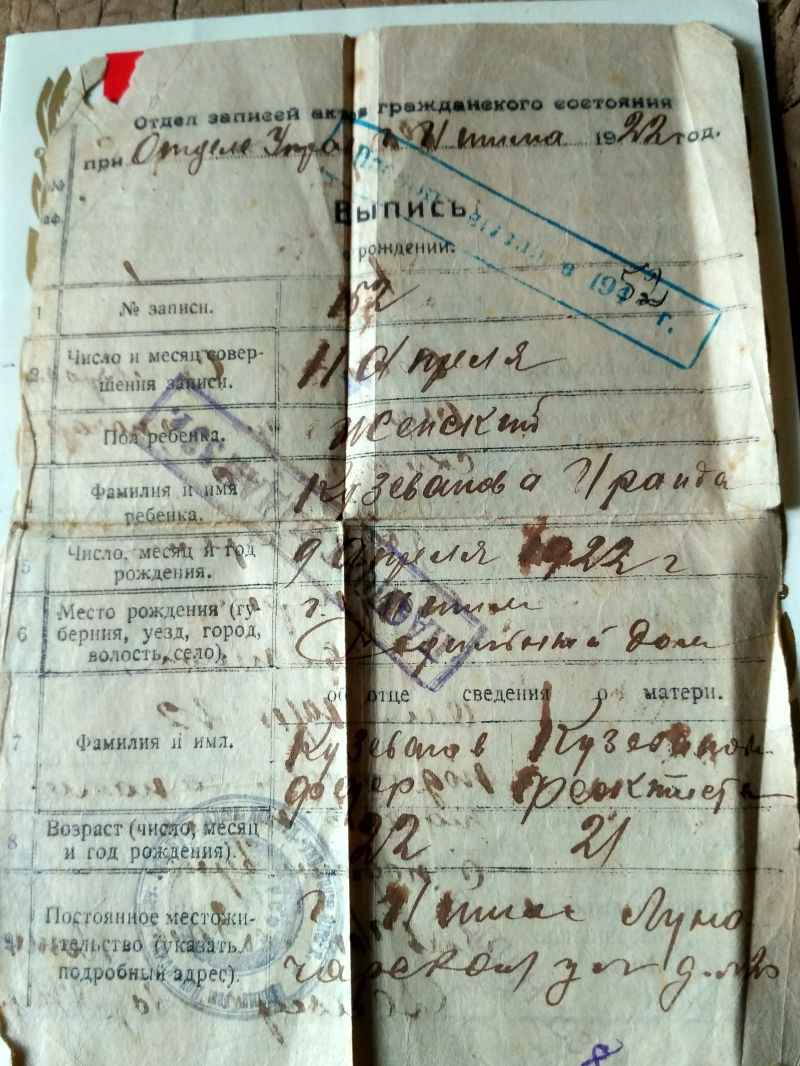 Отдел записей актов гражданского состояния
при Отделе Упра г. Ишима 1922 год.
№
Выпись
рождении.
в 1952 г.
1 № записи. 152
2 Число и месяц совер-
шения записи. 11 Апреля
Пол ребенка. Женский
4 Фамилия и имя
ребенка. Кузеванова Ираида
5 Число, месяц и год
рождения. 9 Апреля 1922 г
6 Место рождения (гу-
берния, уезд, город,
волость, село). г. Ишим
Родильный дом
об отце сведения о матери.
7 Фамилия и имя. Кузеванов Кузеванова
Федер Феоктиста
8 Возраст (число, месяц
и год рождения). 22 21
9 Постоянное местожи-
тельство (указать
подробный адрес). г. Ишим Луно
чарской ул д. №